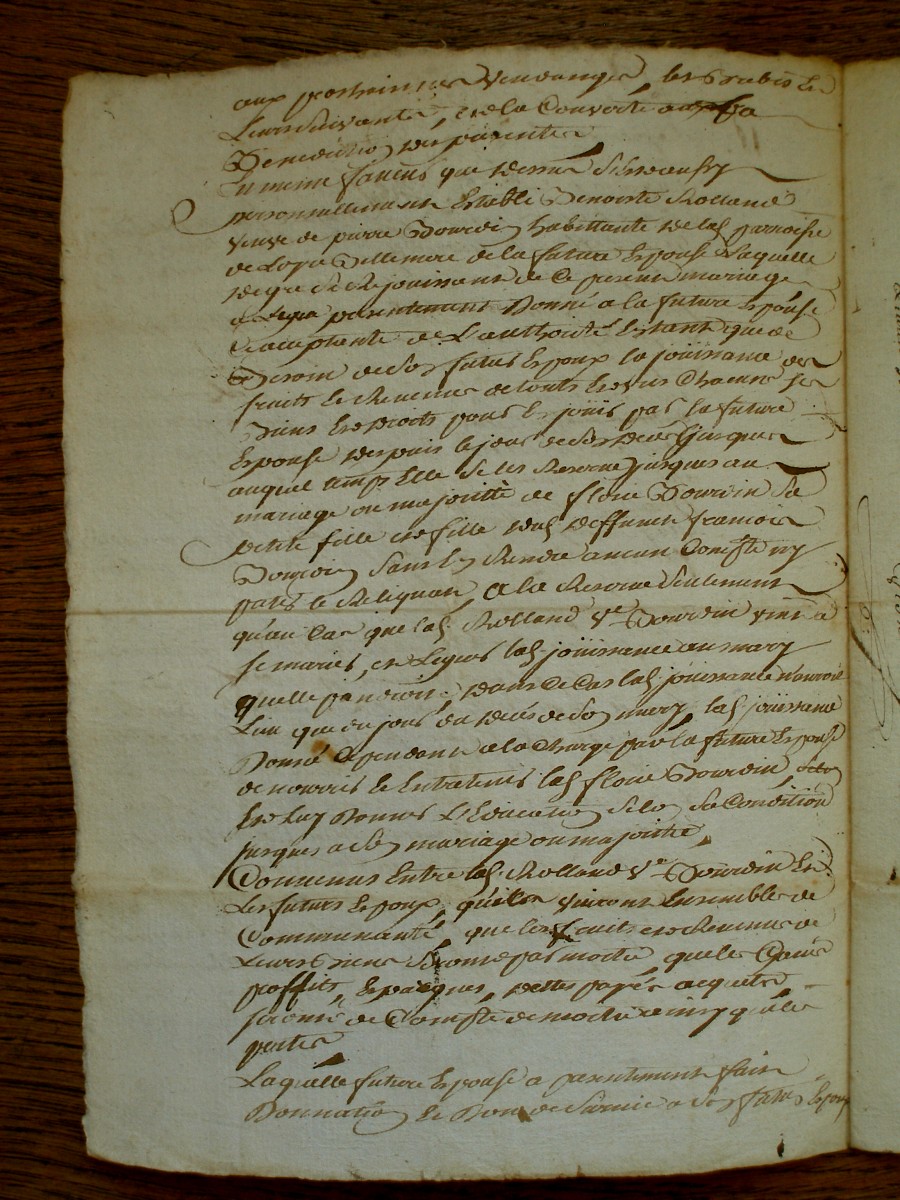 aux prochaines vendanges, les brebis le
Leurs suivante, et la Couverte
Benediction des parentes
En meme faveurs que dessus s'est aussy
personnellement Establi Benoiste Rolland
veuve de pierre Dourdin habittante de lad parroisse
de mere de la future Epouse Laquelle
de gré se Rejouissant de Ce present mariage
a presentement Donné a la future Epouse
acceptante de L'authorité Estant que de
Besoin de son futur Epoux la joüissance des
fruits et Revenus de touts Et chacuns ses
Biens Et droits pour En joüir par la future
Epouse depuis le jour de son decés jusques
auquel temps Elle se les Reserve jusques au
mariage ou majoritté de florie Dourdin sa
petite fille et fille dud deffunct francois
Dourdin sans En Rendre aucun Compte ny
payer le Reliquat, a la Reserve seulement
qu'au Cas que lad. Rolland Ve Dourdin vint a
se marier, et Leguer lad joüissance au mary
quelle prendroit, dans Ce Cas lad. joüissance n'auroit
Lieu que du jour du decés de son mary, lad. joüissance
Donné Cependant a la Charge par la future Epouse
de nourrir et Entretenir lad florie Dourdin,
Et luy Donner L'Education selon sa Condition
jusques a son mariage ou majoritté,
Convenus Entre lad. Rolland Ve Dourdin Et
Les futurs Epoux, qu'ils vivront Ensembles de
Communauté, que les fruits et Revenus de
Leurs Biens par moitié que les
proffits, Epargnes, dettes payés acquets
seront de Compte de moitié
parties
Laquelle future Epouse a presentement fait
Donnation Et Don de survie a son futur Epoux